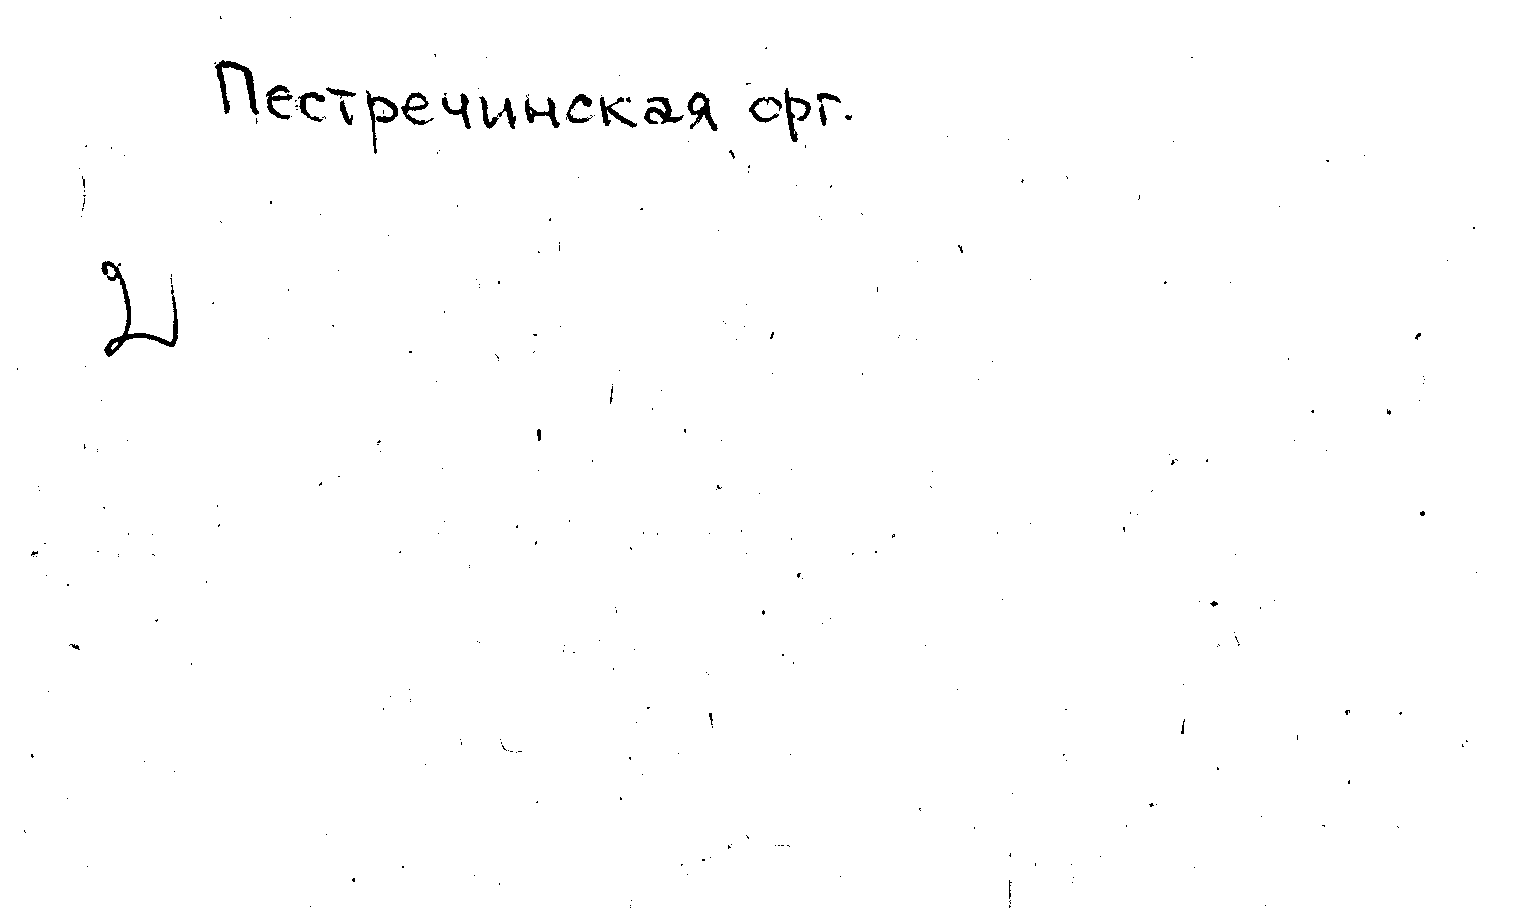 Пестречинская орг.
2